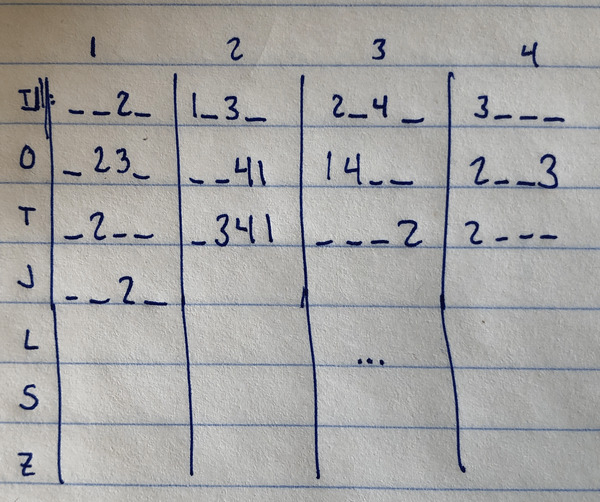 1 2 3 4
I: _ _ 2 _ 1 _ 3 _ 2 _ 4 _ 3 _ _ _
O _ 2 3 _ _ _ 4 1 1 4 _ _ 2 _ _ 3
T _ 2 _ _ _ 3 4 1 _ _ _ 2 2 _ _ _
J _ _ 2 _
L ...
S
Z